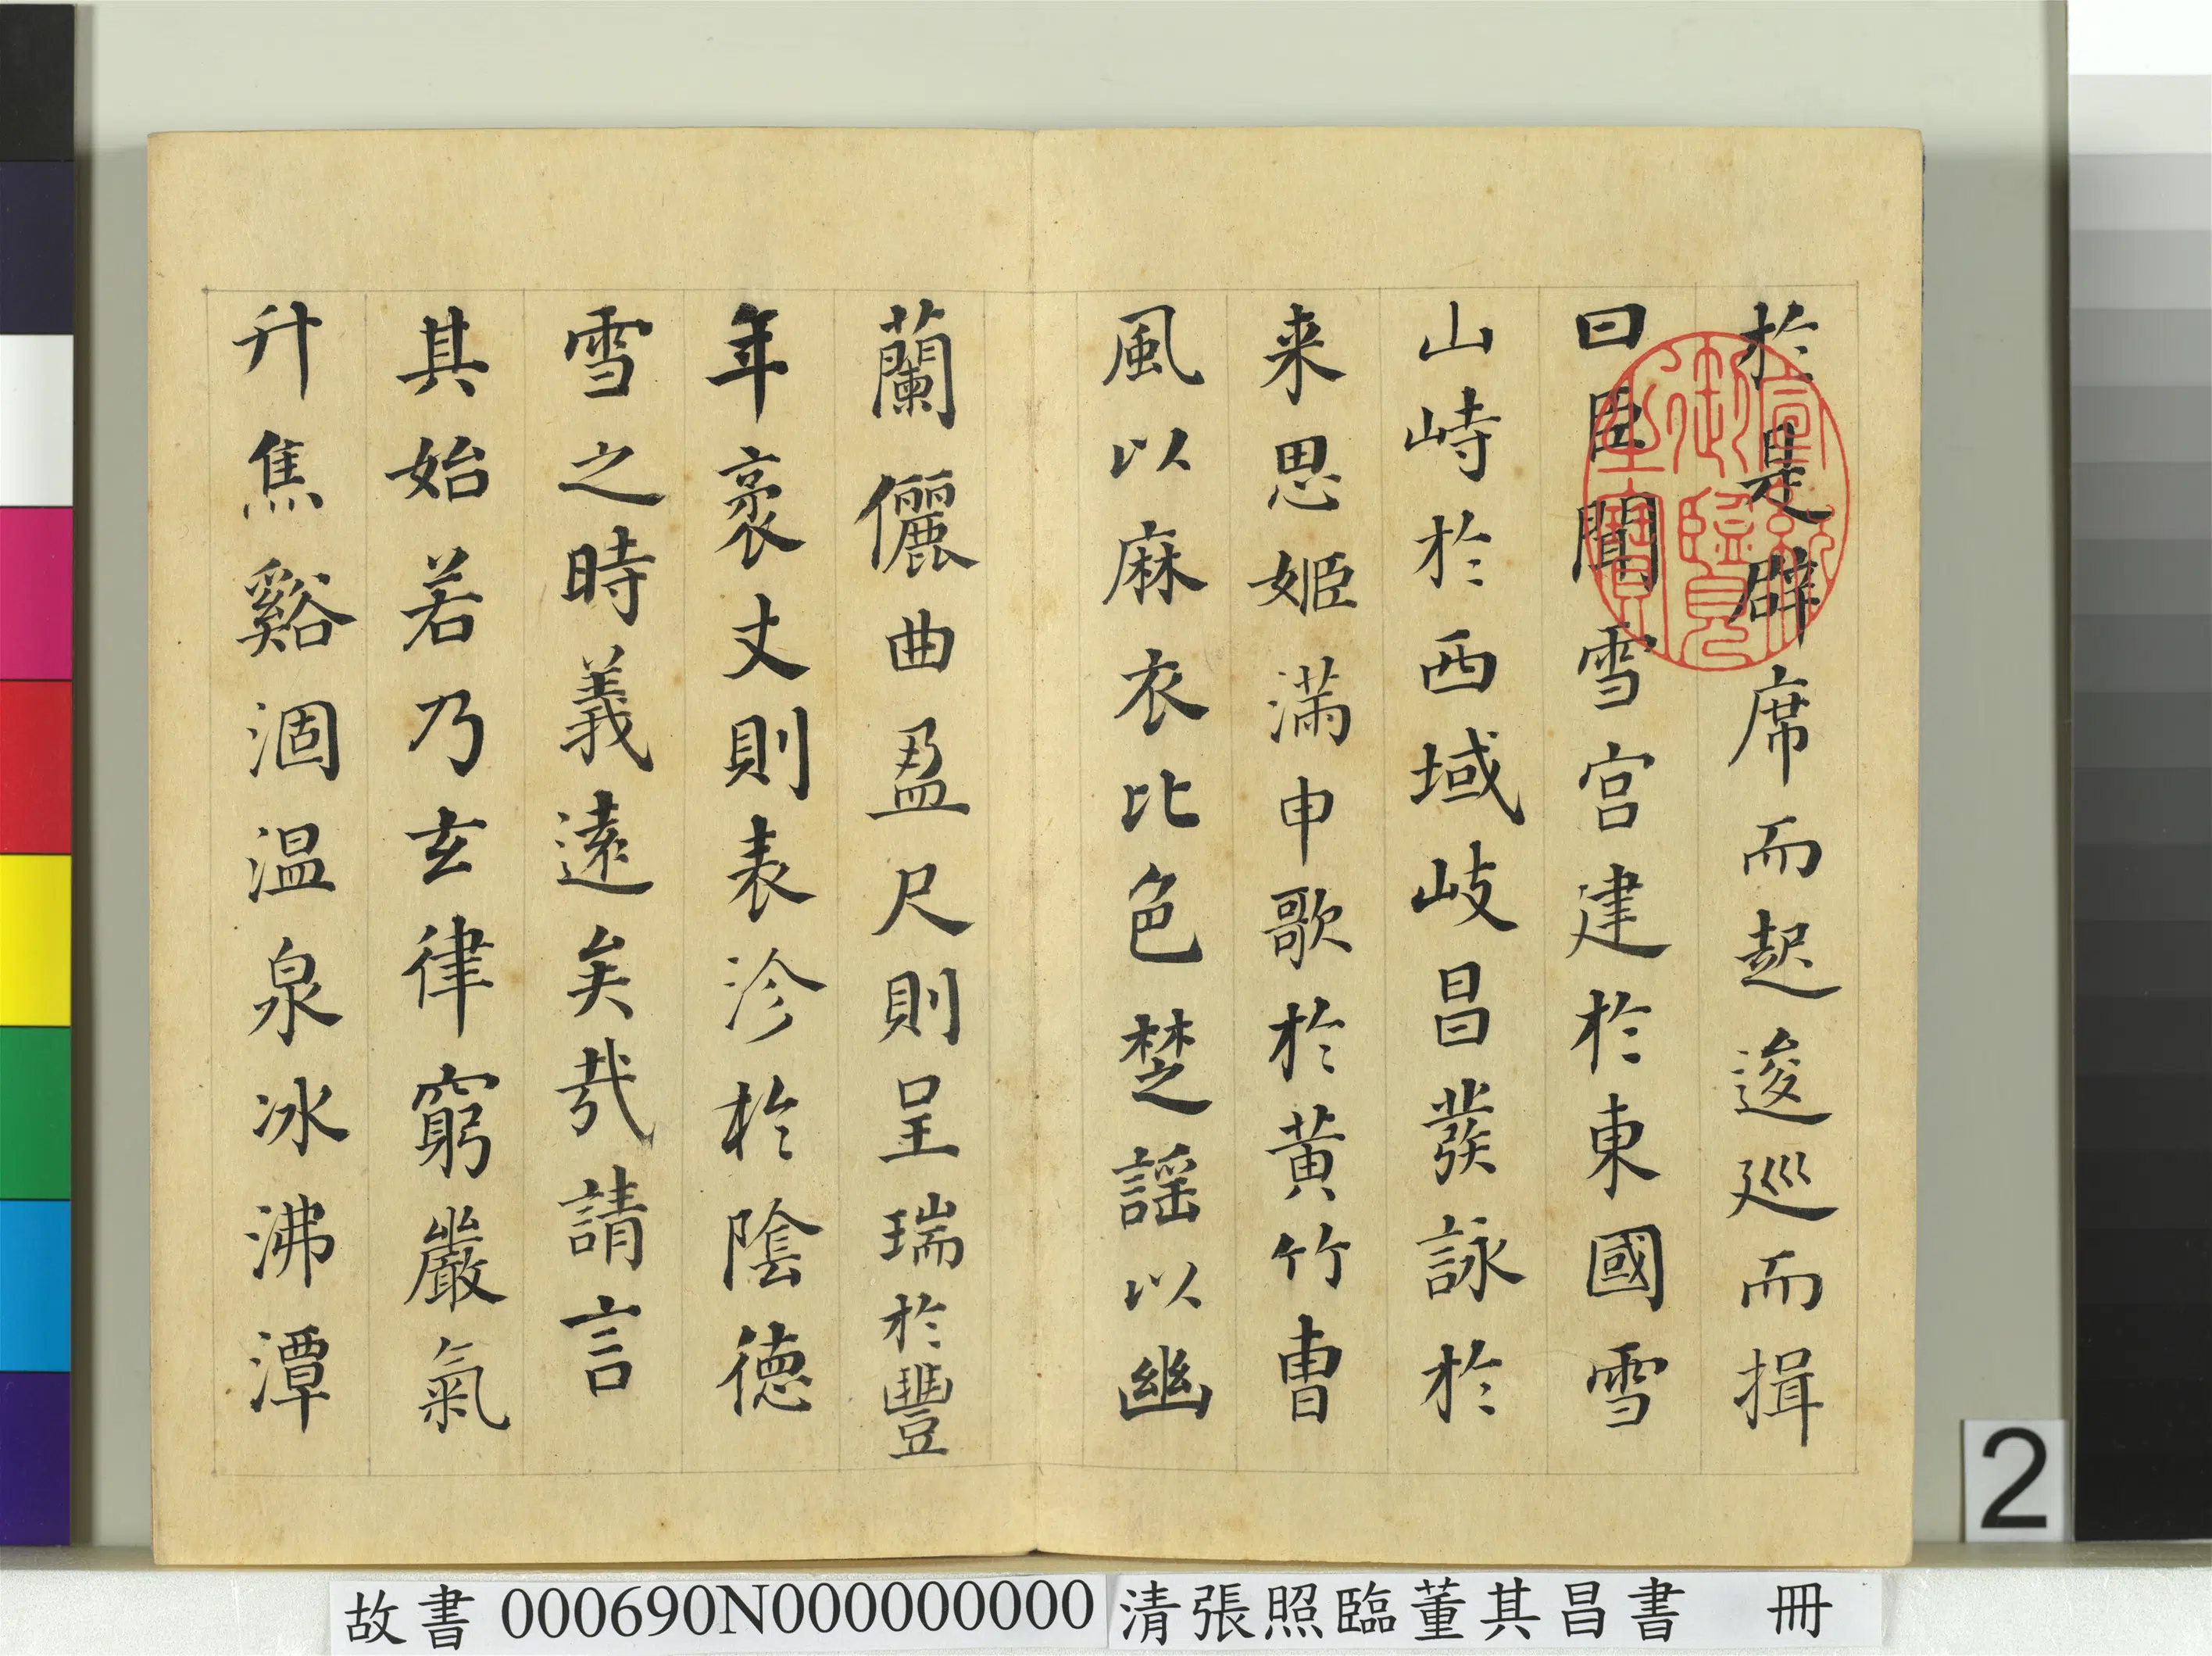 於是避席而起逡巡而揖
曰臣聞雪宮建於東國雪
山峙於西域岐昌發詠於
来思姬滿申歌於黃竹曹
風以麻衣比色楚謠以幽
蘭儷曲盈尺則呈瑞於豐
年袤丈則表沴於陰德
雪之時義遠矣哉請言
其始若乃玄律窮嚴氣
升焦谿涸温泉冰沸潭
宣統御覽之寶
2
故書 000690N000000000 清張照臨董其昌書 冊